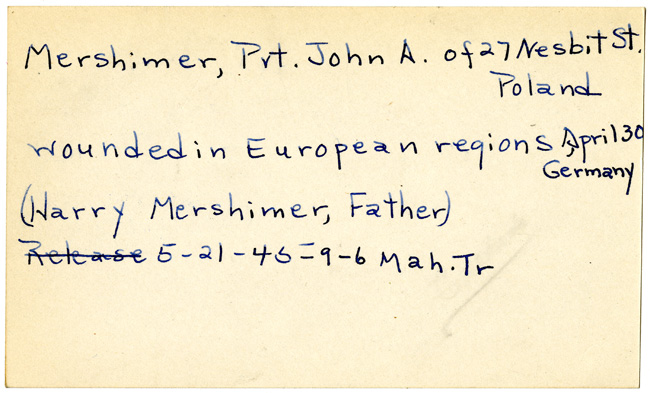 Mershimer, Pvt. John A. of 27 Nesbit St.
Poland
wounded in European regions, April 30
Germany
(Harry Mershimer, Father)
Release 5-21-45=9-6 Mah.Tr